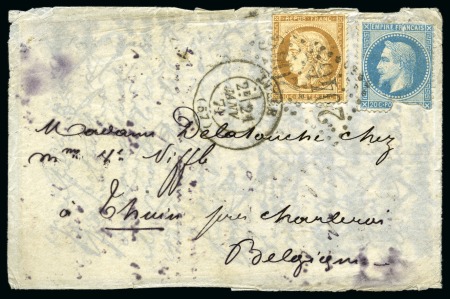 REPUB. FRANC.
EMPIRE FRANÇAIS
20 C. PO 20 C.
MAI
71
(67)
Madame Delatouche chez
mme Ve Niffle
à Thuin près charleroi
Belgique